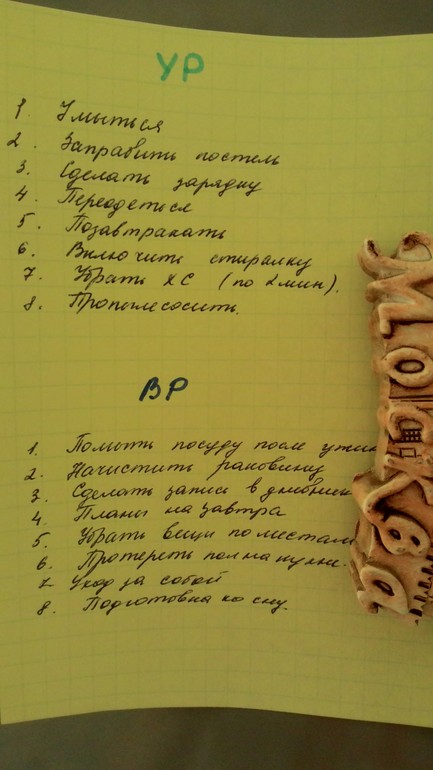 УР
1. Умыться
2. Заправить постель
3. Сделать зарядку
4. Переодеться
5. Позавтракать
6. Включить стиралку
7. Убрать ХС (по 2 мин).
8. Пропылесосить.
ВР
1. Помыть посуду после ужин
2. Начистить раковину
3. Сделать запись в дневник
4. Планы на завтра
5. Убрать вещи по местам
6. Протереть пол на кухне.
7. Уход за собой
8. Подготовка ко сну.
МОСКВА